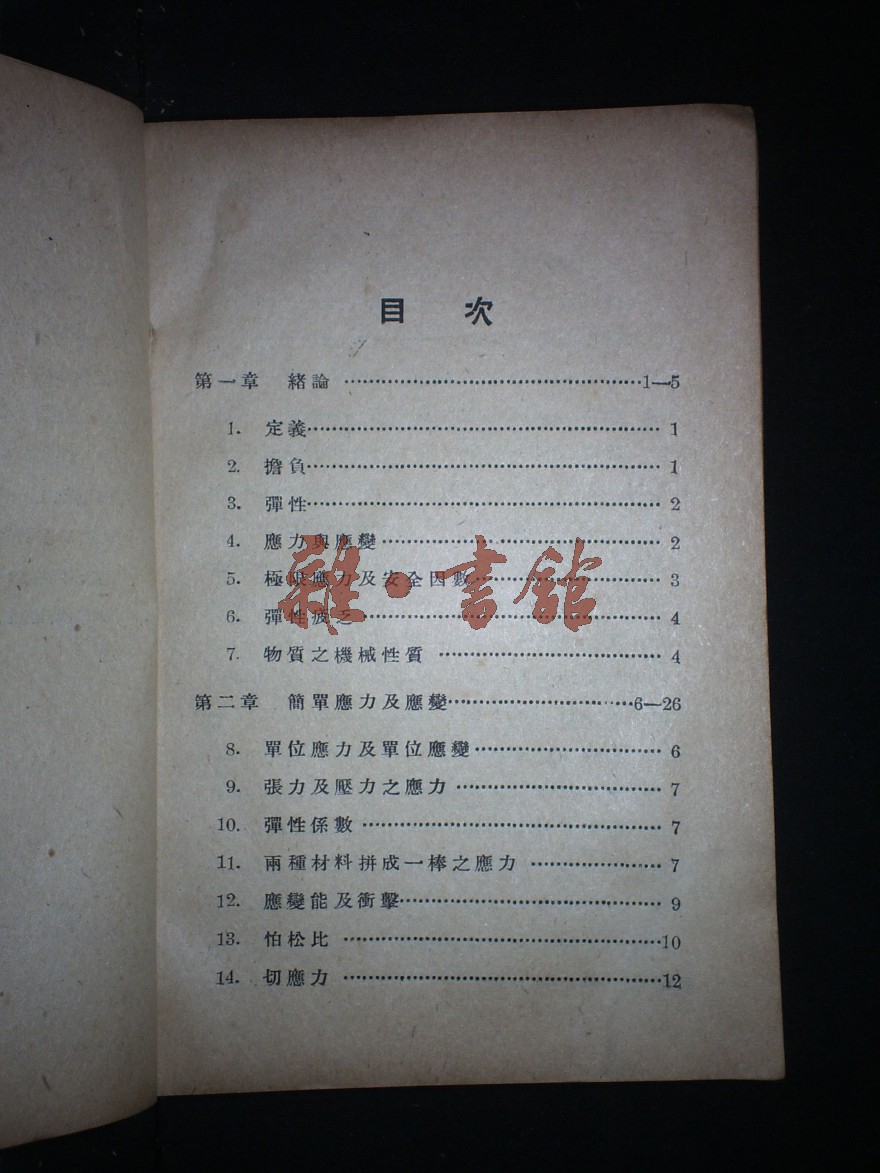 目 次
第一章 緒論 ………………………………1—5
1. 定義……………………………… 1
2. 擔負……………………………… 1
3. 彈性……………………………… 2
4. 應力與應變……………………………… 2
5. 極限應力及安全因數……………………… 3
6. 彈性疲乏……………………………… 4
7. 物質之機械性質 ……………………… 4
第二章 簡單應力及應變………………………6—26
8. 單位應力及單位應變……………………… 6
9. 張力及壓力之應力 ……………………… 7
10. 彈性係數 ……………………………… 7
11. 兩種材料拼成一棒之應力 ……………… 7
12. 應變能及衝擊……………………………… 9
13. 怕松比 ………………………………10
14. 切應力 ………………………………12
雜·書館